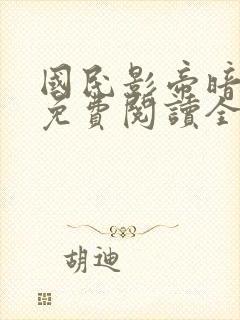 國民影帝暗
免費閱讀全
胡迪